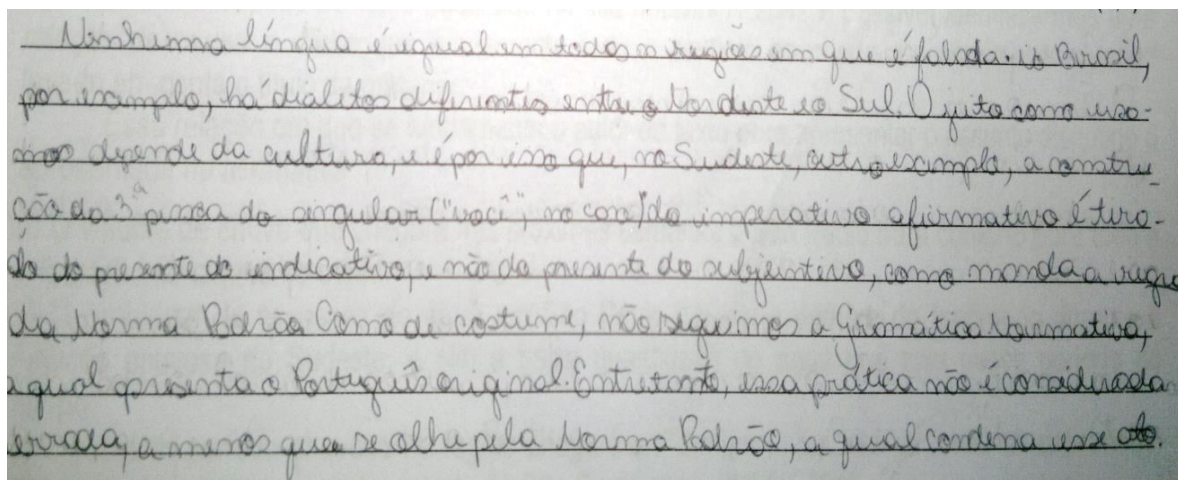 Nenhuma língua é igual em todas as regiões em que é falada. No Brasil,
por exemplo, há dialetos diferentes entre o Nordeste e o Sul. O jeito como usa-
mos depende da cultura, e é por isso que, no Sudeste, outro exemplo, a constru-
ção da 3ª pessoa do singular ("você", no caso) do imperativo afirmativo é tira-
do do presente do indicativo, e não do presente do subjuntivo, como manda a regra
da Norma Padrão. Como de costume, não seguimos a Gramática Normativa,
a qual apresenta o Português original. Entretanto, essa prática não é considerada
errada, a menos que se olhe pela Norma Padrão, a qual condena esse ato.